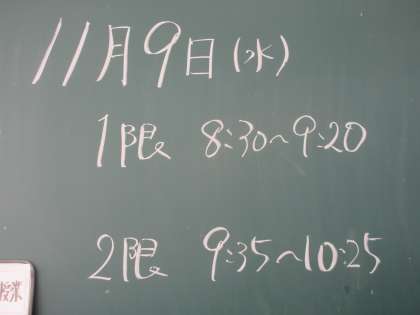 11月9日(水)
1限 8:30~9:20
2限 9:35~10:25
授業